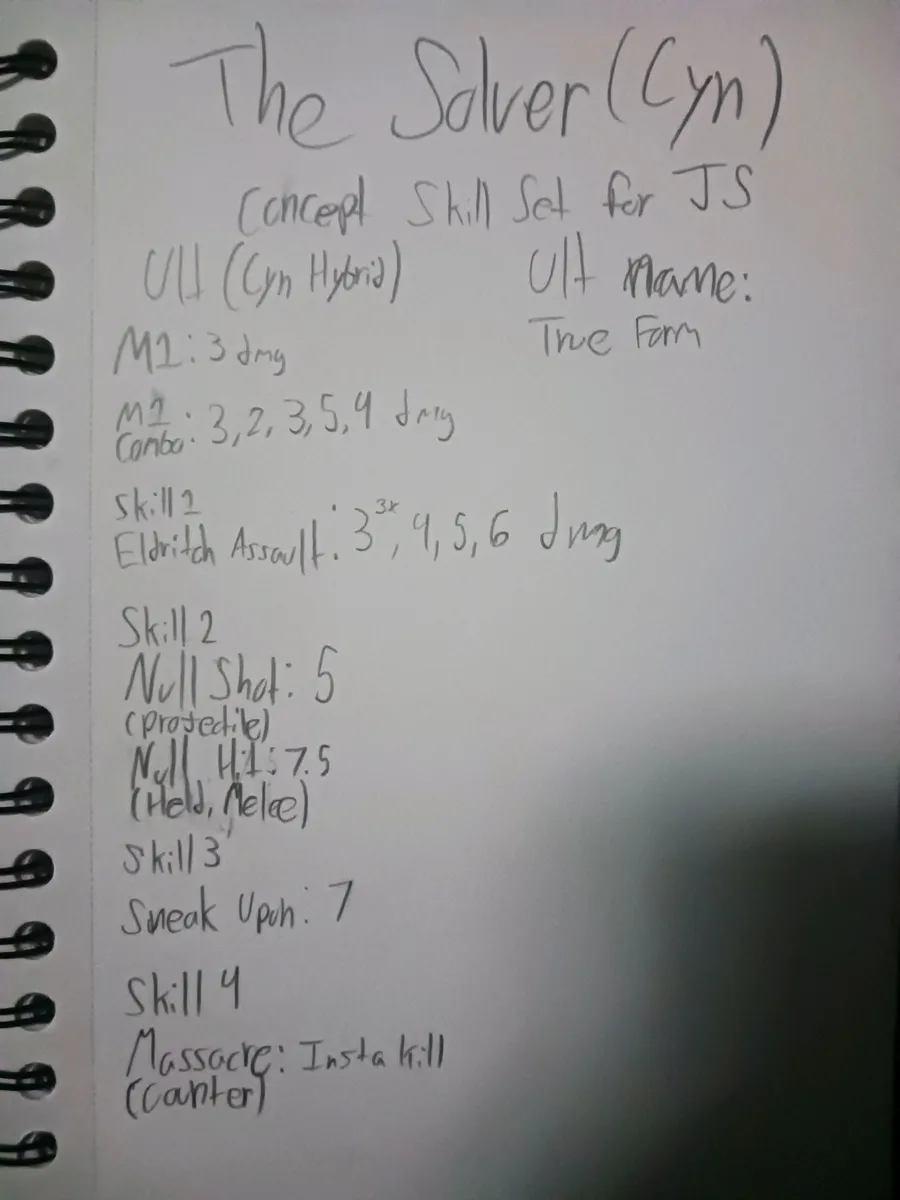 The Solver (Cyn)
Concept Skill Set for JS
Ult (Cyn Hybrid)
Ult Name:
True Form
M1: 3 dmg
M1
Combo: 3, 2, 3, 5, 4 dmg
Skill 1
Eldritch Assault: 3 3x, 4, 5, 6 dmg
Skill 2
Null Shot: 5
(Projectile)
Null Hit: 7.5
(Held, Melee)
Skill 3
Sneak Upon: 7
Skill 4
Massacre: Insta kill
(Counter)